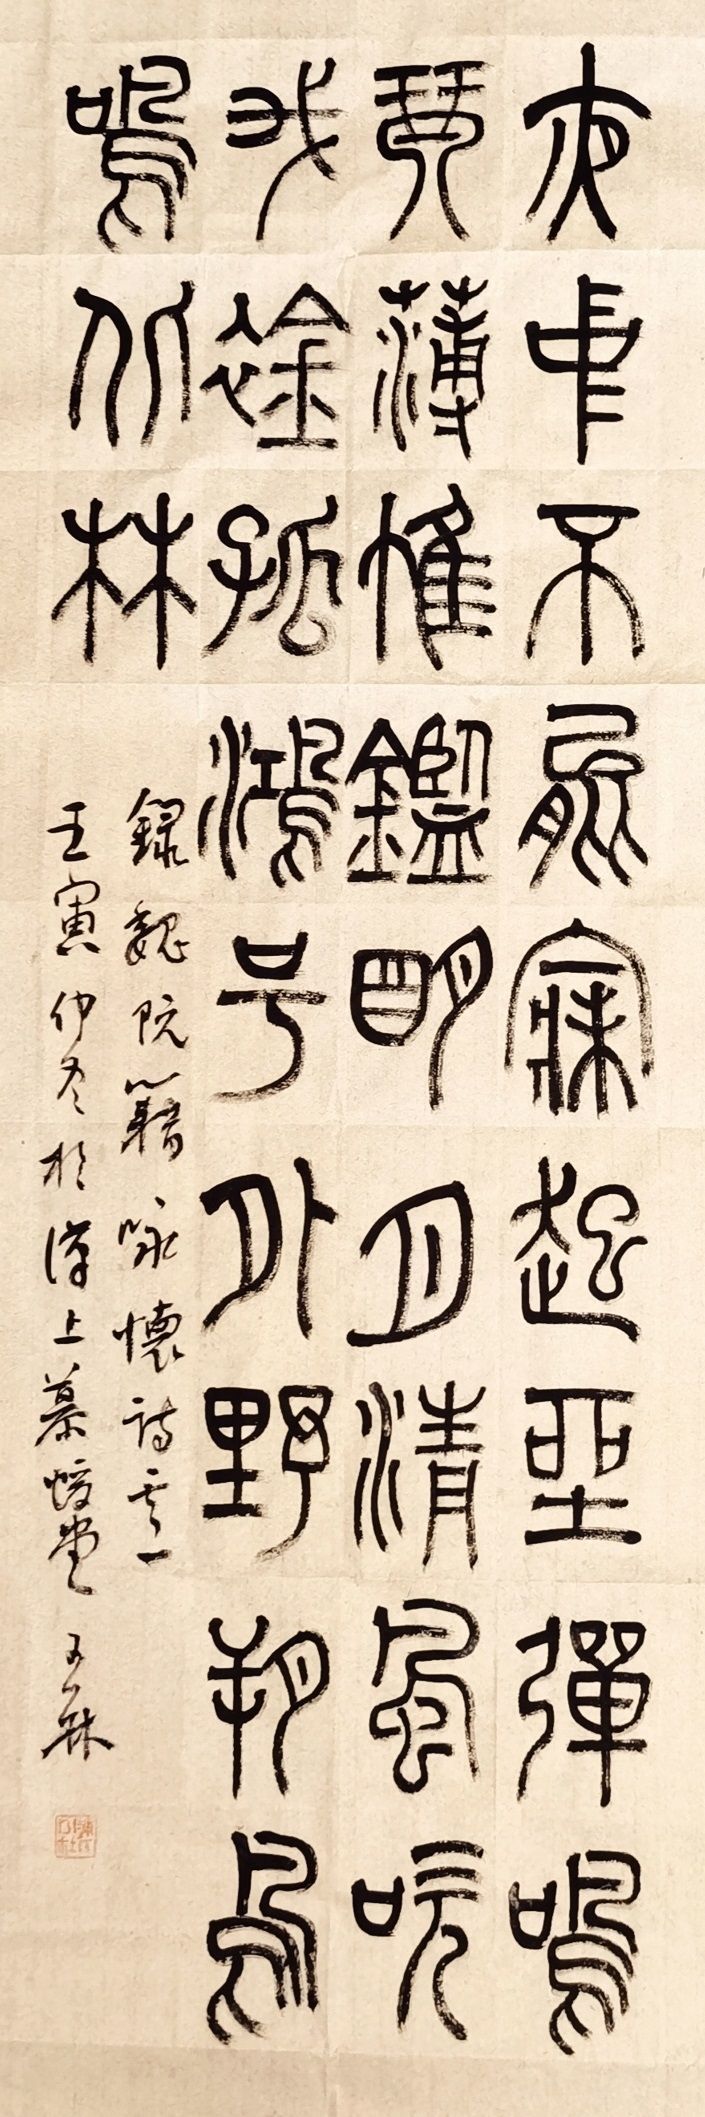 夜中不能寐起坐彈鳴
琴薄帷鑑明月清風吹
我襟孤鴻号外野朔鳥
鳴北林
錄魏阮籍咏懷詩之一
壬寅仲冬於漢上慕堂